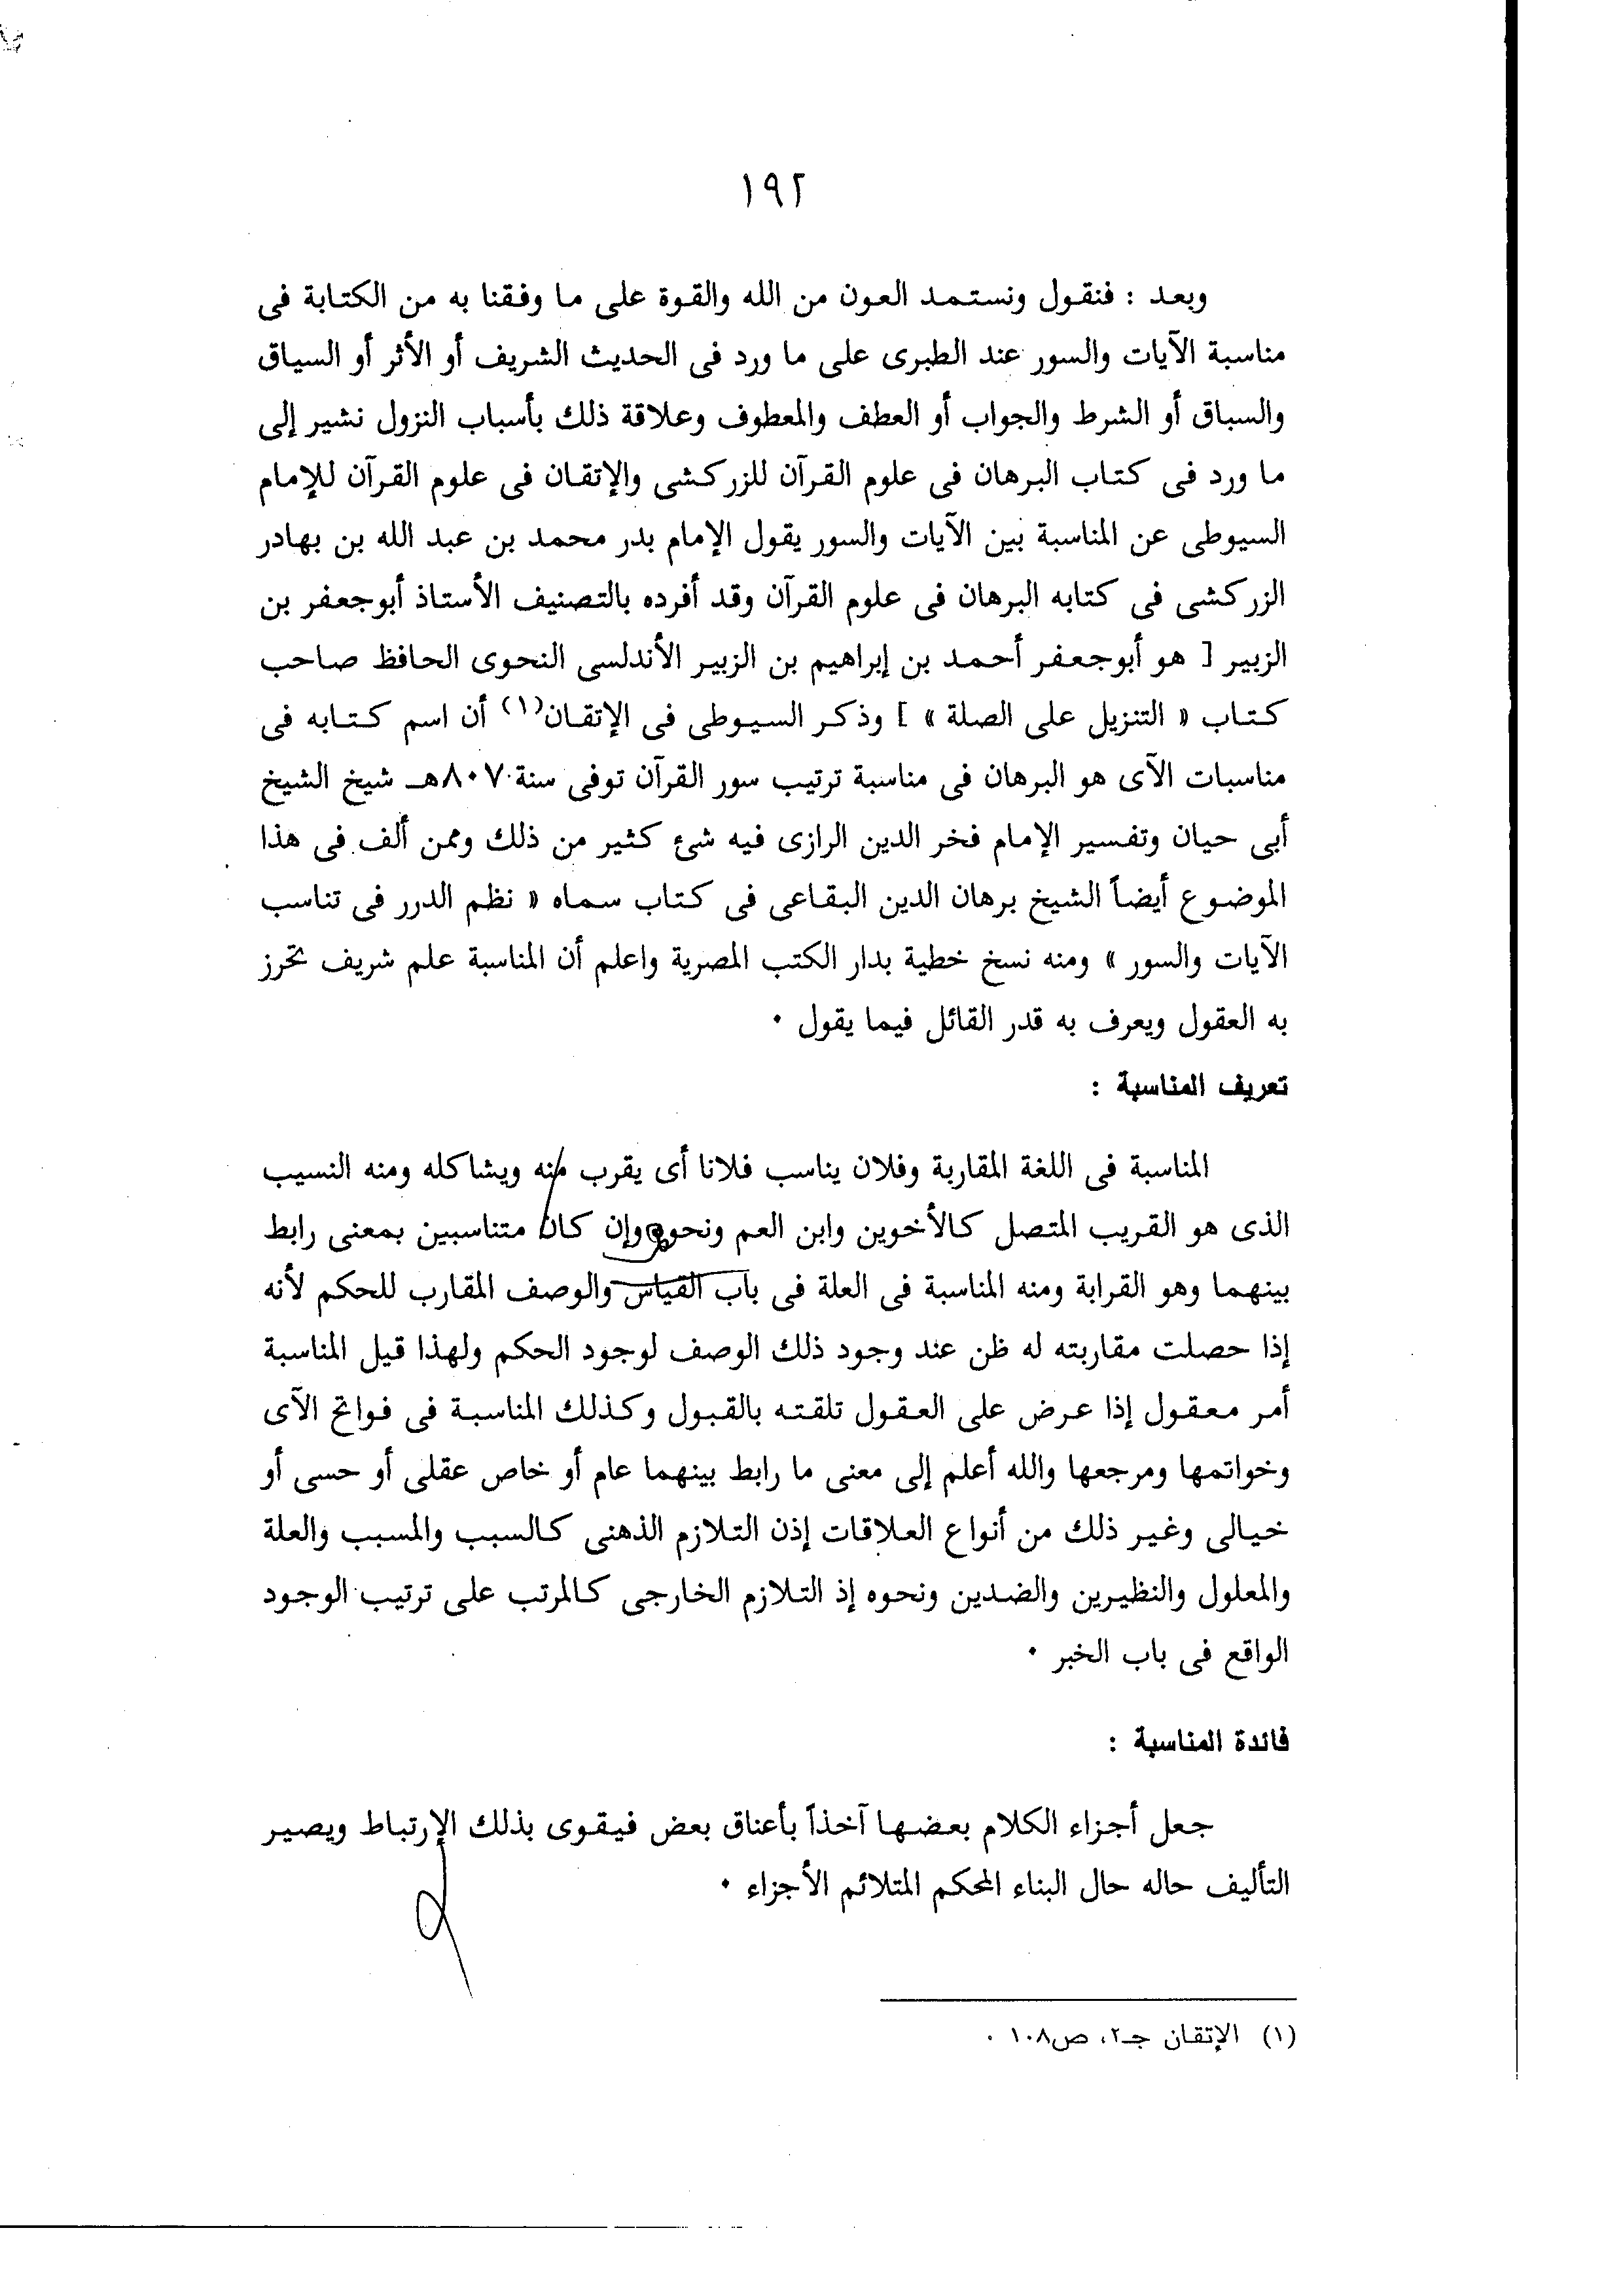 ١٩٢
وبعد : فنقول ونستمد العون من الله والقوة على ما وفقنا به من الكتابة فى
مناسبة الآيات والسور عند الطبرى على ما ورد فى الحديث الشريف أو الأثر أو السياق
والسباق أو الشرط والجواب أو العطف والمعطوف وعلاقة ذلك بأسباب النزول نشير إلى
ما ورد فى كتاب البرهان فى علوم القرآن للزركشى والإتقان فى علوم القرآن للإمام
السيوطى عن المناسبة بين الآيات والسور يقول الإمام بدر محمد بن عبد الله بن بهادر
الزركشى فى كتابه البرهان فى علوم القرآن وقد أفرده بالتصنيف الأستاذ أبوجعفر بن
الزبير [ هو أبوجعفر أحمد بن إبراهيم بن الزبير الأندلسى النحوى الحافظ صاحب
كتاب « التنزيل على الصلة » ] وذكر السيوطى فى الإتقان(١) أن اسم كتابه فى
مناسبات الآى هو البرهان فى مناسبة ترتيب سور القرآن توفى سنة ٨٠٧هـ شيخ الشيخ
أبى حيان وتفسير الإمام فخر الدين الرازى فيه شئ كثير من ذلك وممن ألف فى هذا
الموضوع أيضاً الشيخ برهان الدين البقاعى فى كتاب سماه « نظم الدرر فى تناسب
الآيات والسور » ومنه نسخ خطية بدار الكتب المصرية واعلم أن المناسبة علم شريف تحرز
به العقول ويعرف به قدر القائل فيما يقول ٠
تعريف المناسبة :
المناسبة فى اللغة المقاربة وفلان يناسب فلانا أى يقرب منه ويشاكله ومنه النسيب
الذى هو القريب المتصل كالأخوين وابن العم ونحوه وإن كان متناسبين بمعنى رابط
بينهما وهو القرابة ومنه المناسبة فى العلة فى باب القياس والوصف المقارب للحكم لأنه
إذا حصلت مقاربته له ظن عند وجود ذلك الوصف لوجود الحكم ولهذا قيل المناسبة
أمر معقول إذا عرض على العقول تلقته بالقبول وكذلك المناسبة فى فواتح الآى
وخواتمها ومرجعها والله أعلم إلى معنى ما رابط بينهما عام أو خاص عقلى أو حسى أو
خيالى وغير ذلك من أنواع العلاقات إذن التلازم الذهنى كالسبب والمسبب والعلة
والمعلول والنظيرين والضدين ونحوه إذ التلازم الخارجى كالمرتب على ترتيب الوجود
الواقع فى باب الخبر ٠
فائدة المناسبة :
جعل أجزاء الكلام بعضها آخذاً بأعناق بعض فيقوى بذلك الإرتباط ويصير
التأليف حاله حال البناء المحكم المتلائم الأجزاء ٠
(١) الإتقان جـ٢، ص١٠٨ .